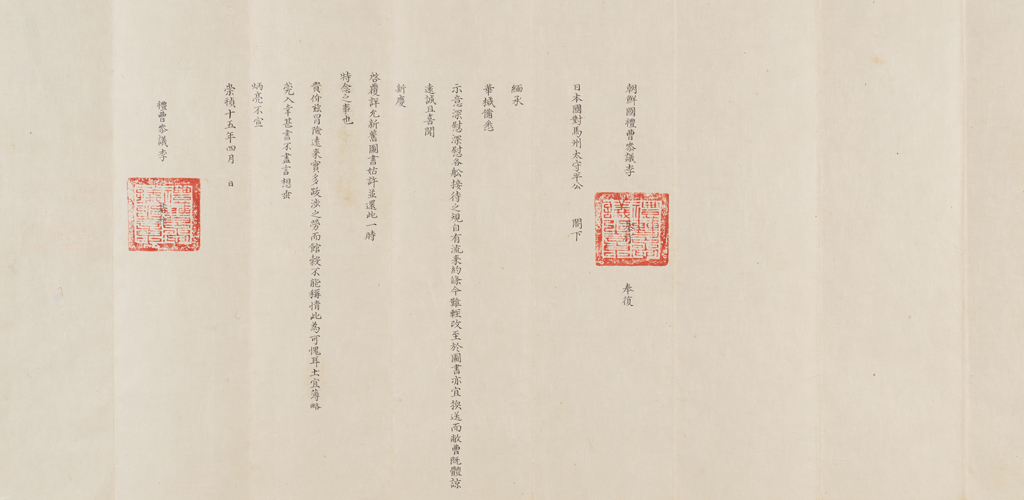 朝鮮國禮曹參議李 奉復
日本國對馬州太守平公 閤下
緬承
華椷備悉
示意深慰深慰各舩接待之規自有流来約條今難輕改至於圖書亦宜換送而敝曹既體諒
遠誠且喜聞
新慶
啓覆詳允新舊圖書姑許並還此一時
特念之事也
貴价玆冒險遠来實多跋涉之勞而館穀不能稱情此為可愧耳土宜薄略
莞入幸甚書不盡言想希
炳亮不宣
崇禎十五年四月 日
禮曹參議李